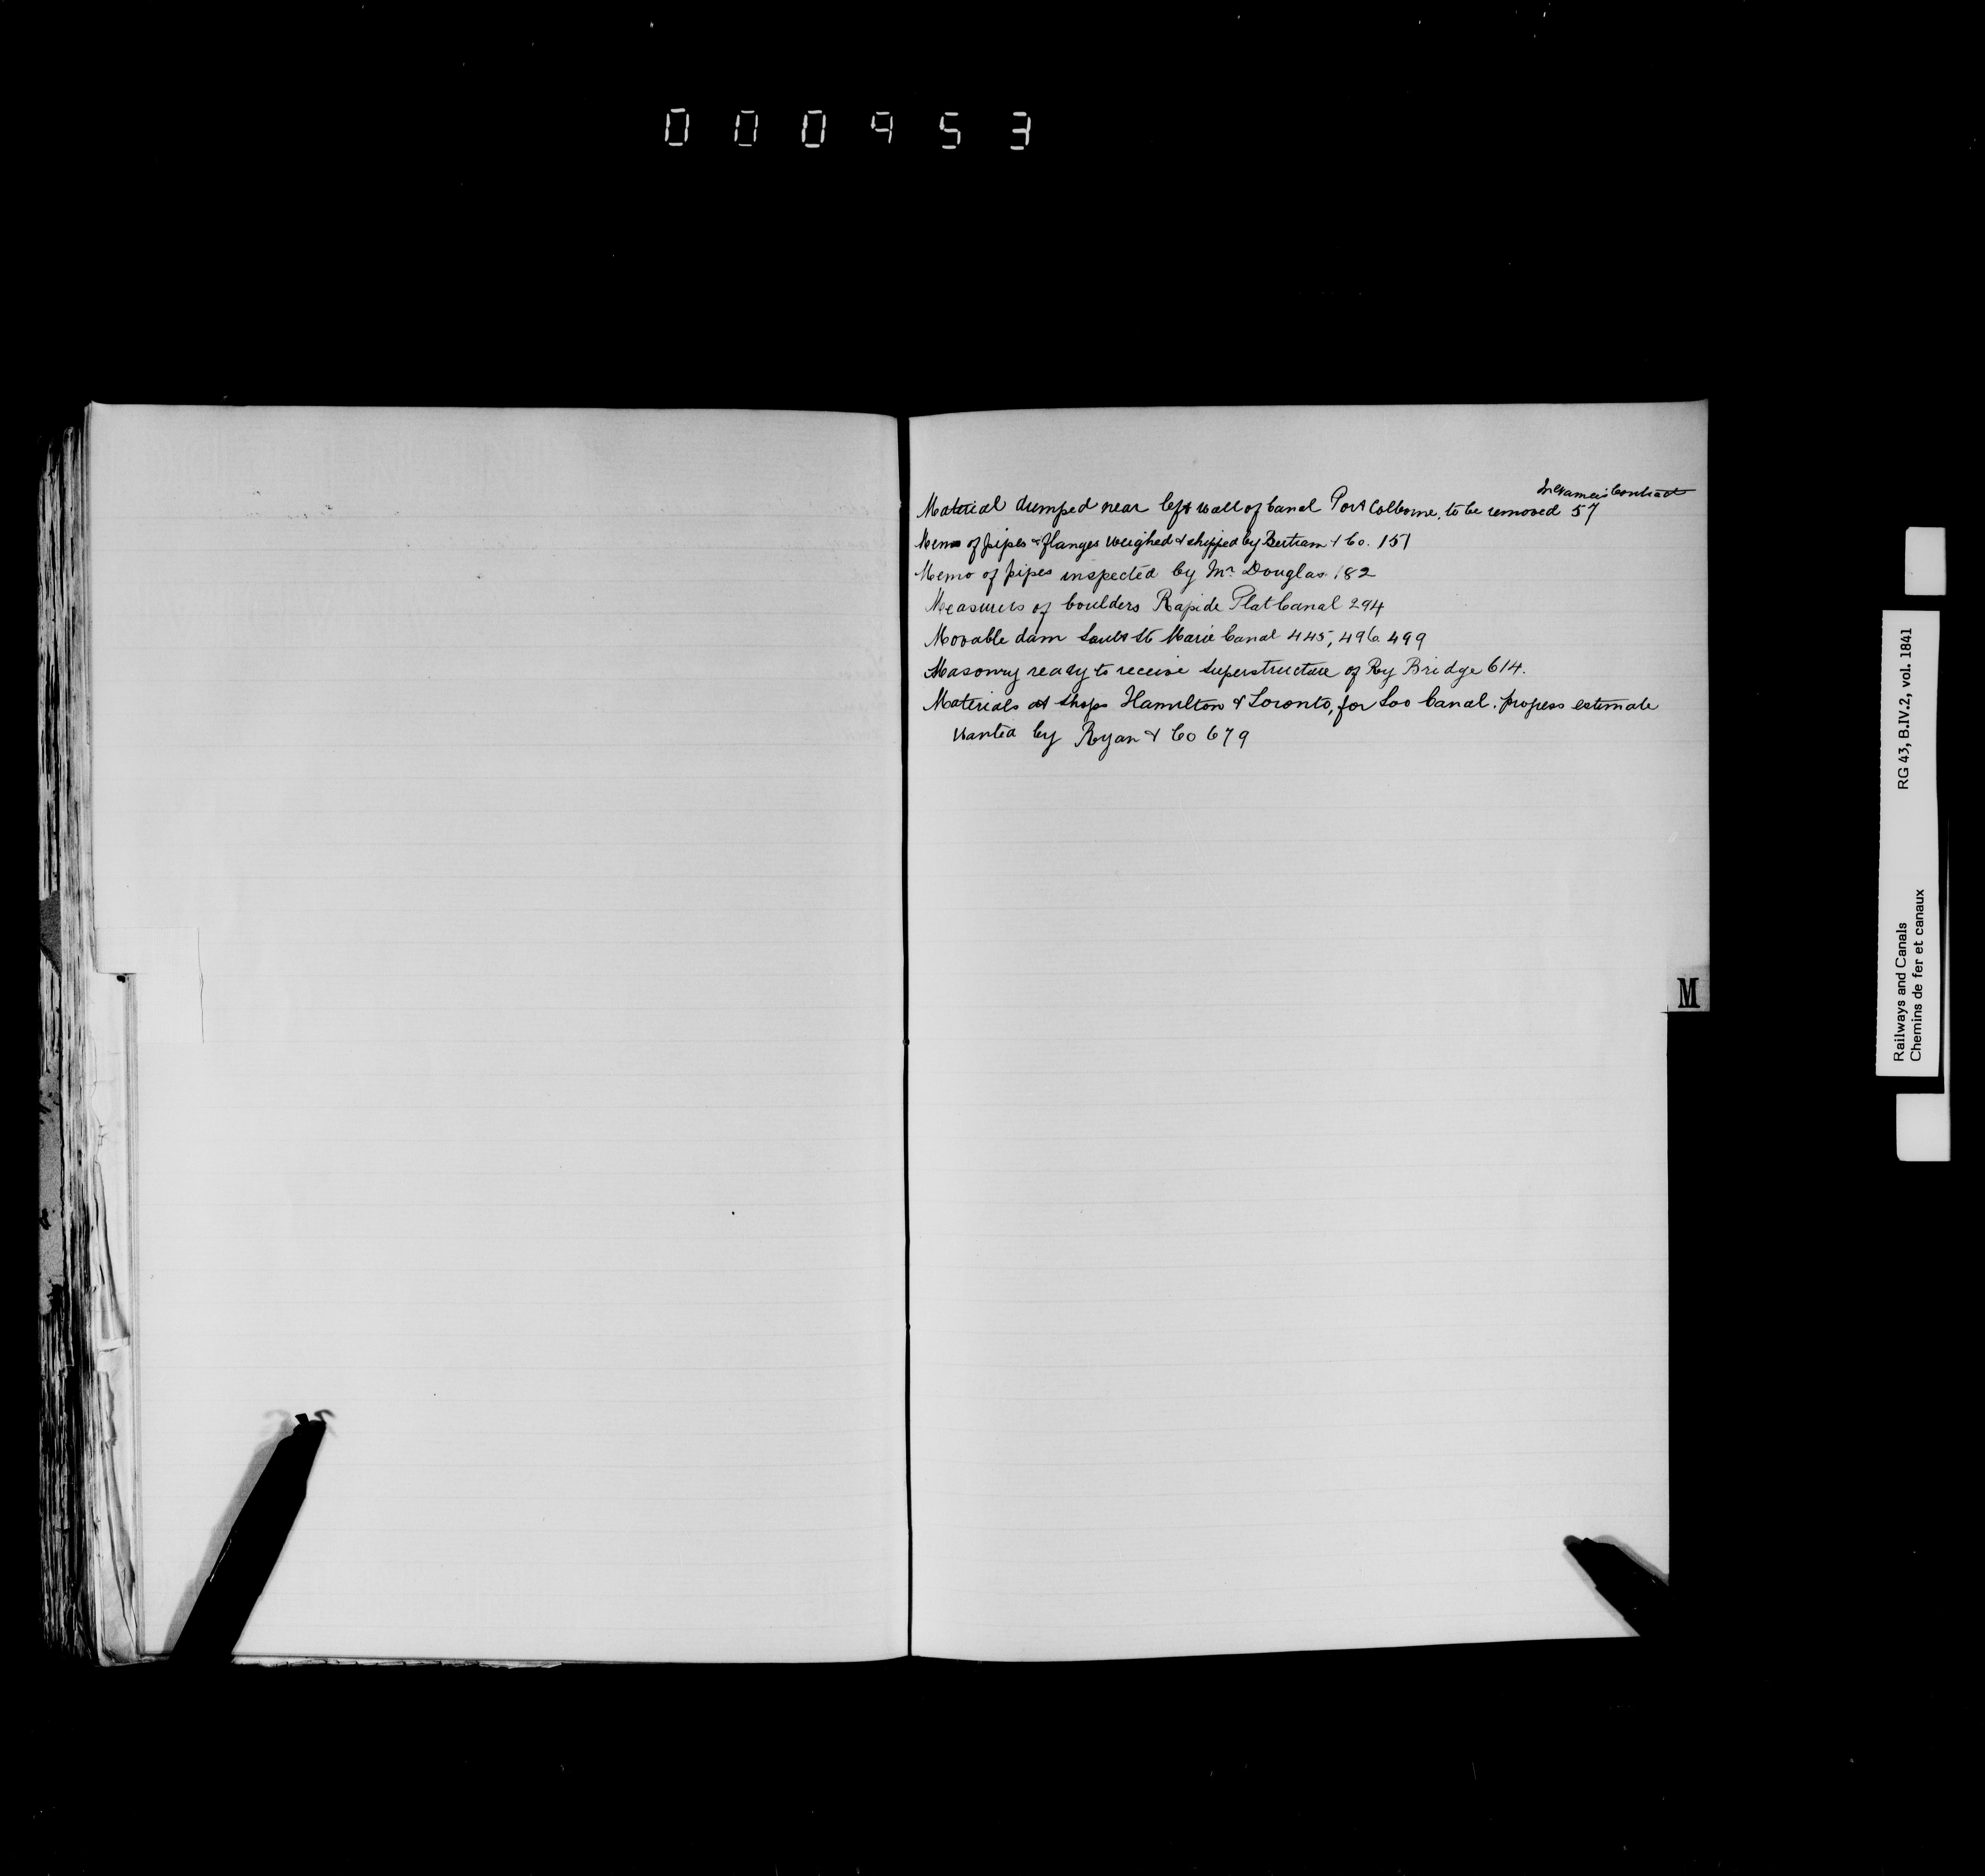 000953
Contract
Material dumped near left wall of Canal Port Colborne, to be removed 57
Memo of pipes & flanges weighed & shipped by Bertram & Co. 151
Memo of pipes inspected by Mr Douglas 182
Measures of boulders Rapide Plat Canal 294
Movable dam Sault Ste Marie Canal 445, 496 499
Masonry ready to receive Superstructure of Ry Bridge 614.
Materials at shops Hamilton & Toronto, for Soo Canal. progress estimate
wanted by Ryan & Co 679
M
Railways and Canals RG 43, B.IV.2, vol. 1841
Chemins de fer et canaux